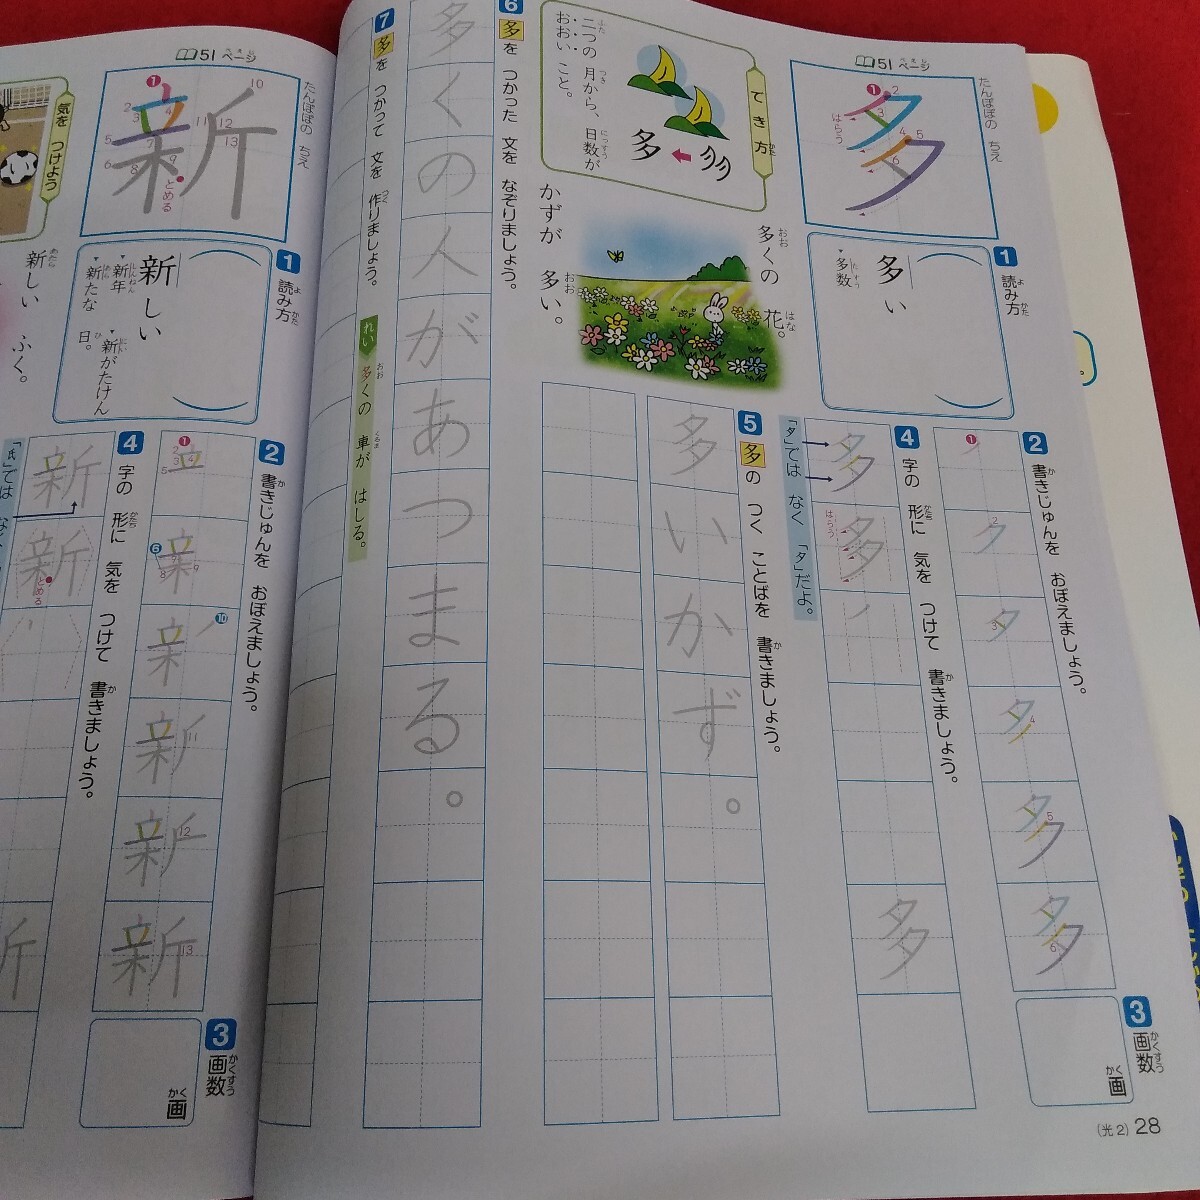 51ページ
たんぽぽの ちえ
多
はらう
1 読み方
多い
多数
2 書きじゅんを おぼえましょう。
3 画数
画
てき方
二つの 月から、日数が
おおい こと。
多
多くの 花。
かずが 多い。
4 字の 形に 気を つけて 書きましょう。
多
はらう
多
「タ」では なく 「夕」だよ。
5 多の つく ことばを 書きましょう。
多いかず。
6 多を つかった 文を なぞりましょう。
多くの人があつまる。
7 多を つかって 文を 作りましょう。
れい 多くの 車が はしる。
(光2) 28
51ページ
たんぽぽの ちえ
新
とめる
1 読み方
新しい
新年
新たな 日。
新がたけん
2 書きじゅんを おぼえましょう。
3 画数
画
気を つけよう
新しい ふく。
4 字の 形に 気を つけて 書きましょう。
新
新
とめる